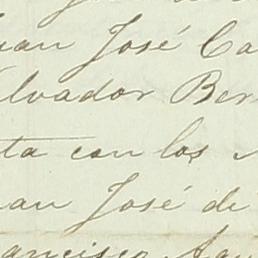 uan José Ca
lvador Ber
ta con los
uan José de
ancisco